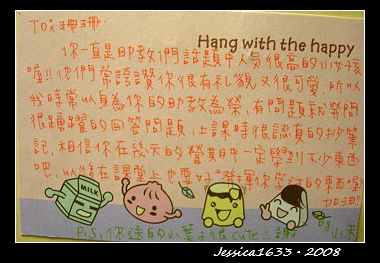 To:珊珊.
Hang with the happy
你一直是助教們話題中人氣很高的小女孩
喔!!他們常誇讚你很有礼貌又很可愛,所以
我時常以身為你的助教為榮,有問題就發問
很踴躍的回答問題,上課時很認真的抄筆
記,相信你在幾天的營其中一定學到不少東西
吧,以後在課堂上也要好好發揮你學過的東西喔!
加油!!
MILK
P.S,你送的小葉子很Cute!!謝
Jessica1633 · 2008